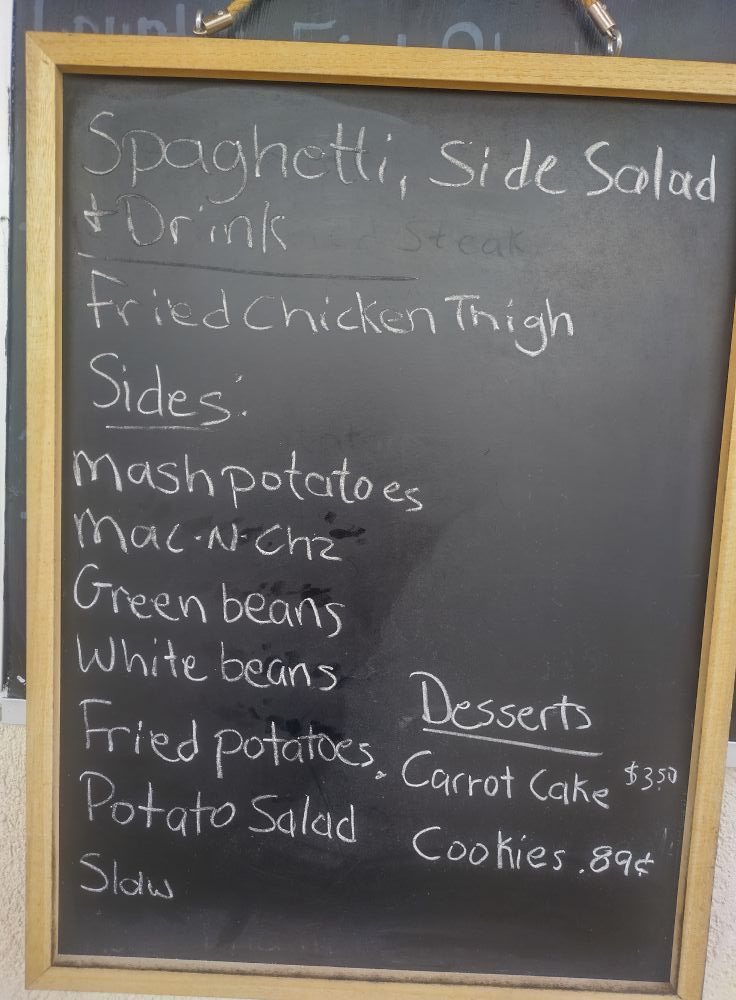 Spaghetti, Side Salad
+ Drink
Steak
Fried Chicken Thigh
Sides:
Mash potatoes
Mac-N-Chz
Green beans
White beans
Fried potatoes
Potato Salad
Slaw
Desserts
Carrot Cake $3.50
Cookies .89¢